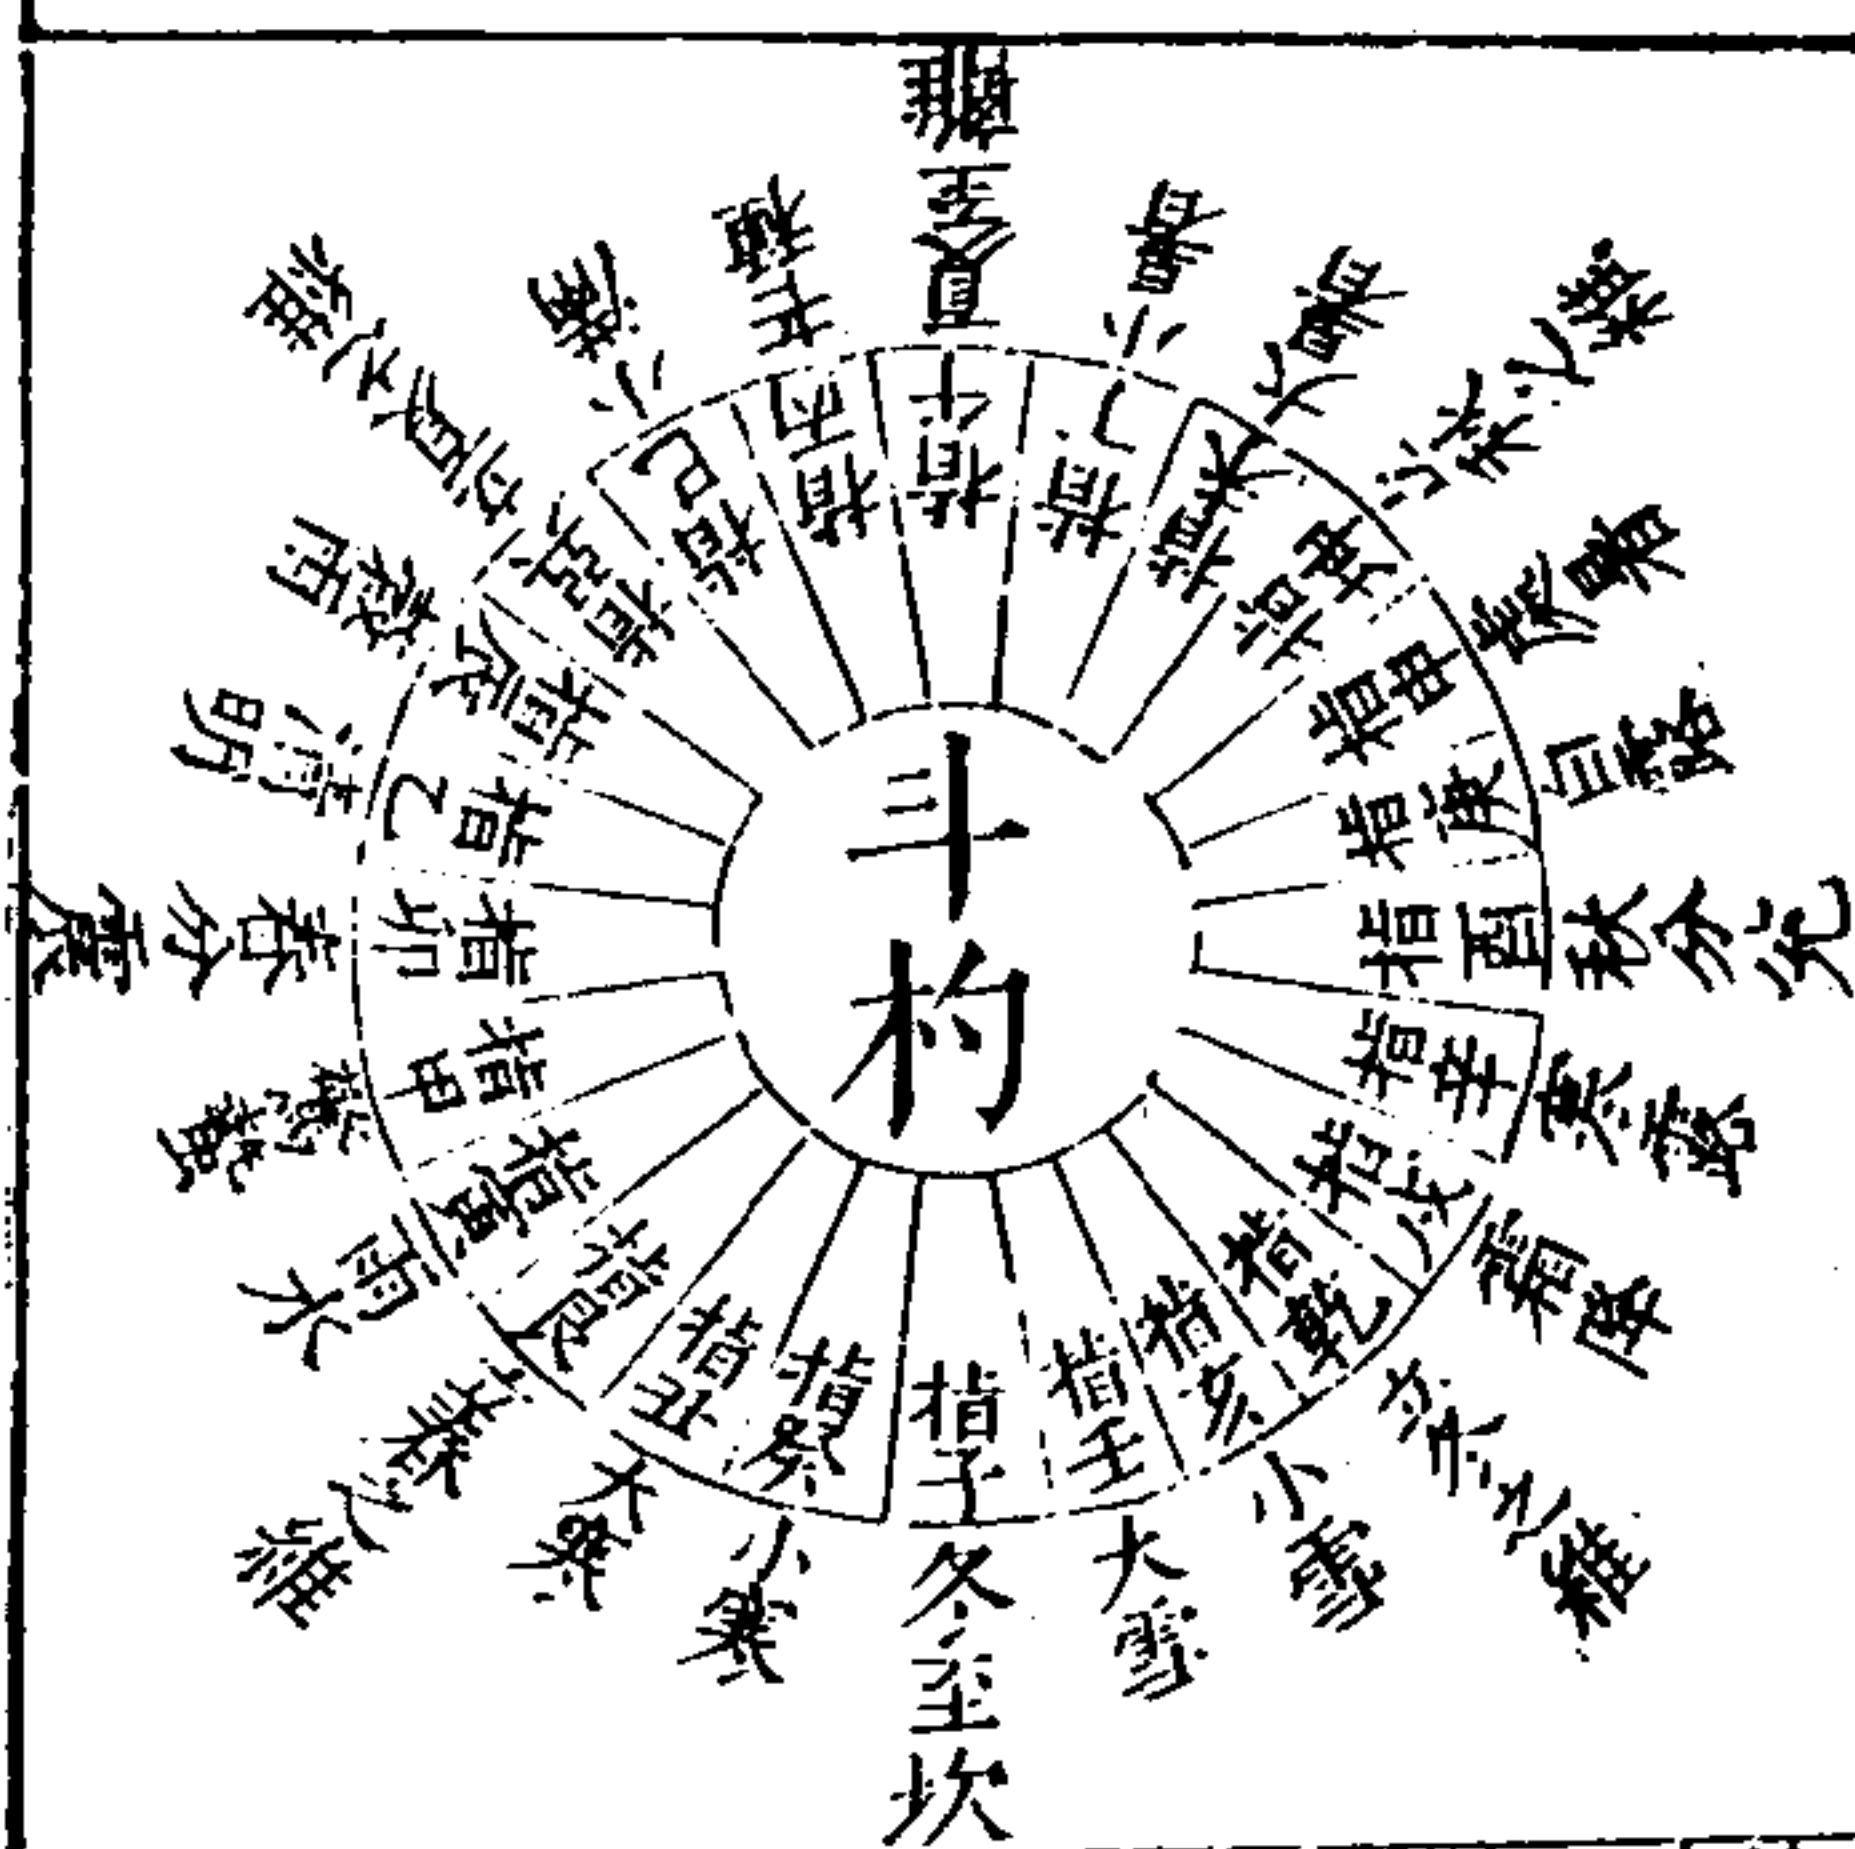 斗杓
指子冬至坎
指癸小寒
指丑大寒
指艮立春之維
指寅雨水
指甲驚蟄
指卯春分震
指乙清明
指辰穀雨
指巽立夏之維
指巳小滿
指丙芒種
指午夏至離
指丁小暑
指未大暑
指坤立秋之維
指申處暑
指庚白露
指酉秋分兌
指辛寒露
指戌霜降
指乾立冬之維
指亥小雪
指壬大雪